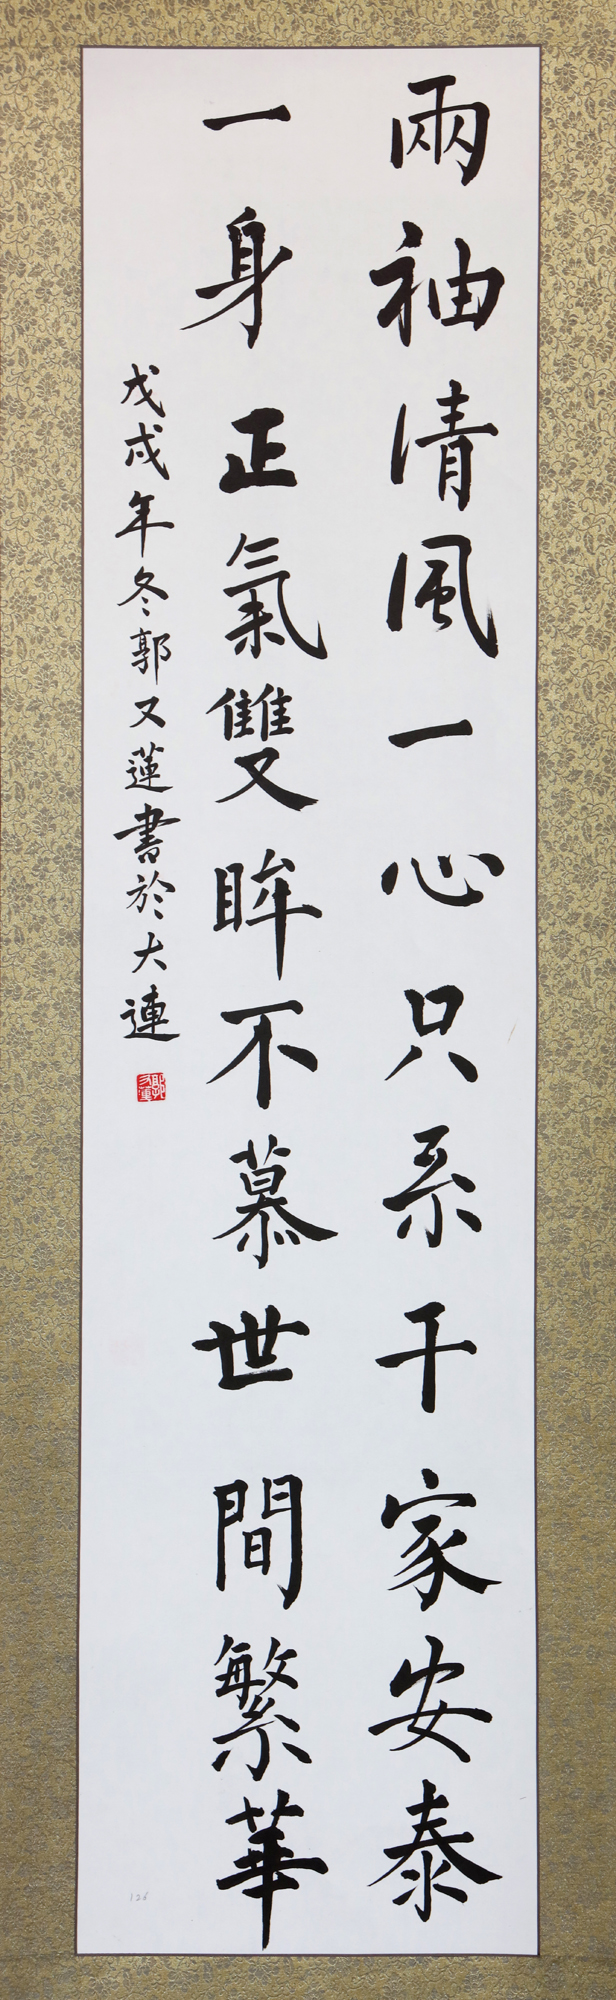 兩袖清風一心只系千家安泰
一身正氣雙眸不慕世間繁華
戊戌年冬郭又蓮書於大連
郭又蓮
126